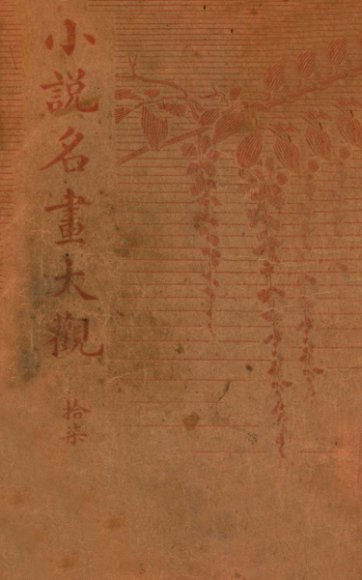 小説名畫大觀
拾柒